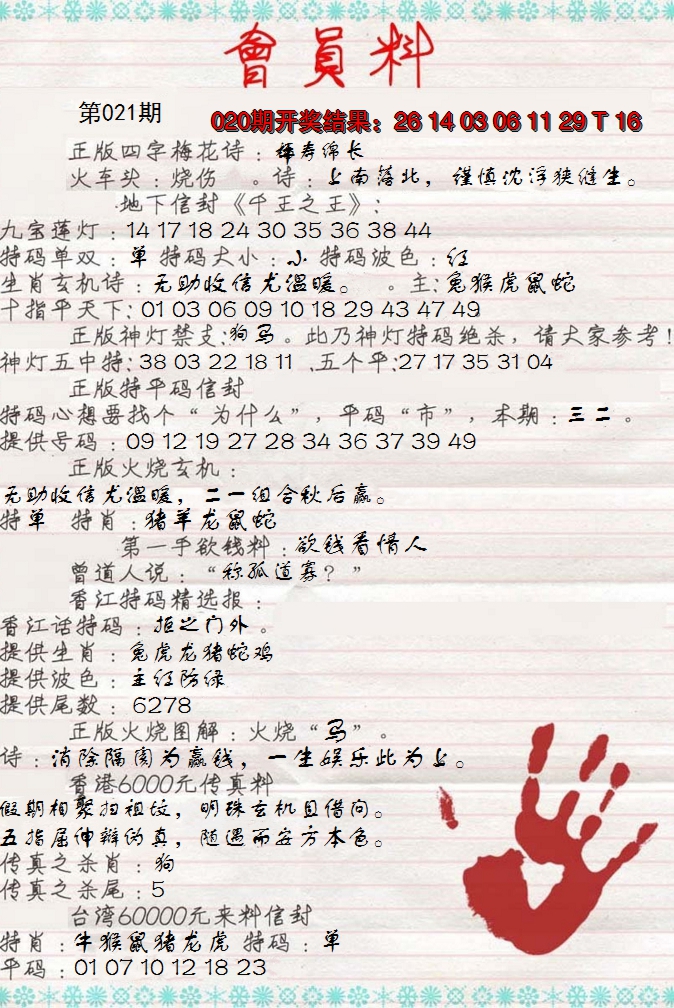 會員料
第021期
020期开奖结果：26 14 03 06 11 29 T 16
正版四字梅花诗： 寿绵长
火车头：烧伤 。诗：上南落北，谨慎沈浮狭缝生。
地下信封《千王之王》：
九宝莲灯：14 17 18 24 30 35 36 38 44
特码单双：单 特码大小：小 特码波色：红
生肖玄机诗：无助收信尤温暖。 。主：兔猴虎鼠蛇
十指平天下：01 03 06 09 10 18 29 43 47 49
正版神灯禁支：狗马。此乃神灯特码绝杀，请大家参考！
神灯五中特：38 03 22 18 11 、五个平：27 17 35 31 04
正版特平码信封
特码心想要找个“为什么”，平码“市”，本期：三二。
提供号码：09 12 19 27 28 34 36 37 39 49
正版火烧玄机：
无助收信尤温暖，二一组合秋后赢。
特单 特肖：猪羊龙鼠蛇
第一手欲钱料：欲钱看情人
曾道人说：“称孤道寡？”
香江特码精选报：
香江话特码：拒之门外。
提供生肖：兔虎龙猪蛇鸡
提供波色：主红防绿
提供尾数：6278
正版火烧图解：火烧“马”。
诗：消除隔阂为赢钱，一生娱乐此为上。
香港6000元传真料
假期相聚扫祖坟，明珠玄机且借问。
五指屈伸辩伪真，随遇而安方本色。
传真之杀肖：狗
传真之杀尾：5
台湾60000元来料信封
特肖：牛猴鼠猪龙虎 特码：单
平码：01 07 10 12 18 23